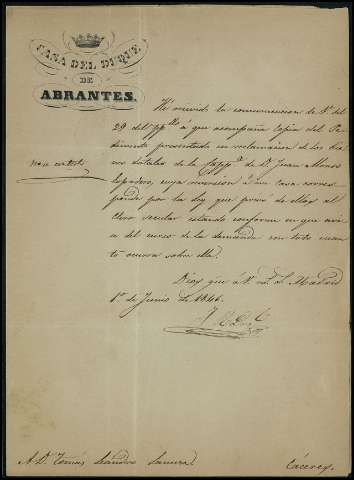 CASA DEL DUQUE
DE
ABRANTES.
He recivido la comunicacion de V. del
29 del pp.do á que acompaña copia del Pe-
dimento presentado en reclamacion de los bie-
nes dotales de la de D. Juan Alonso
cuya inversion á mi casa corres-
ponde por la ley que privó de ellos al
Clero secular estando conforme en que
del curso de la demanda con todo cuan-
to ocurra sobre ella.
Dios gue. á V. Madrid
1º de Junio de 1846.
A D. Tomás Leandro
Cáceres.